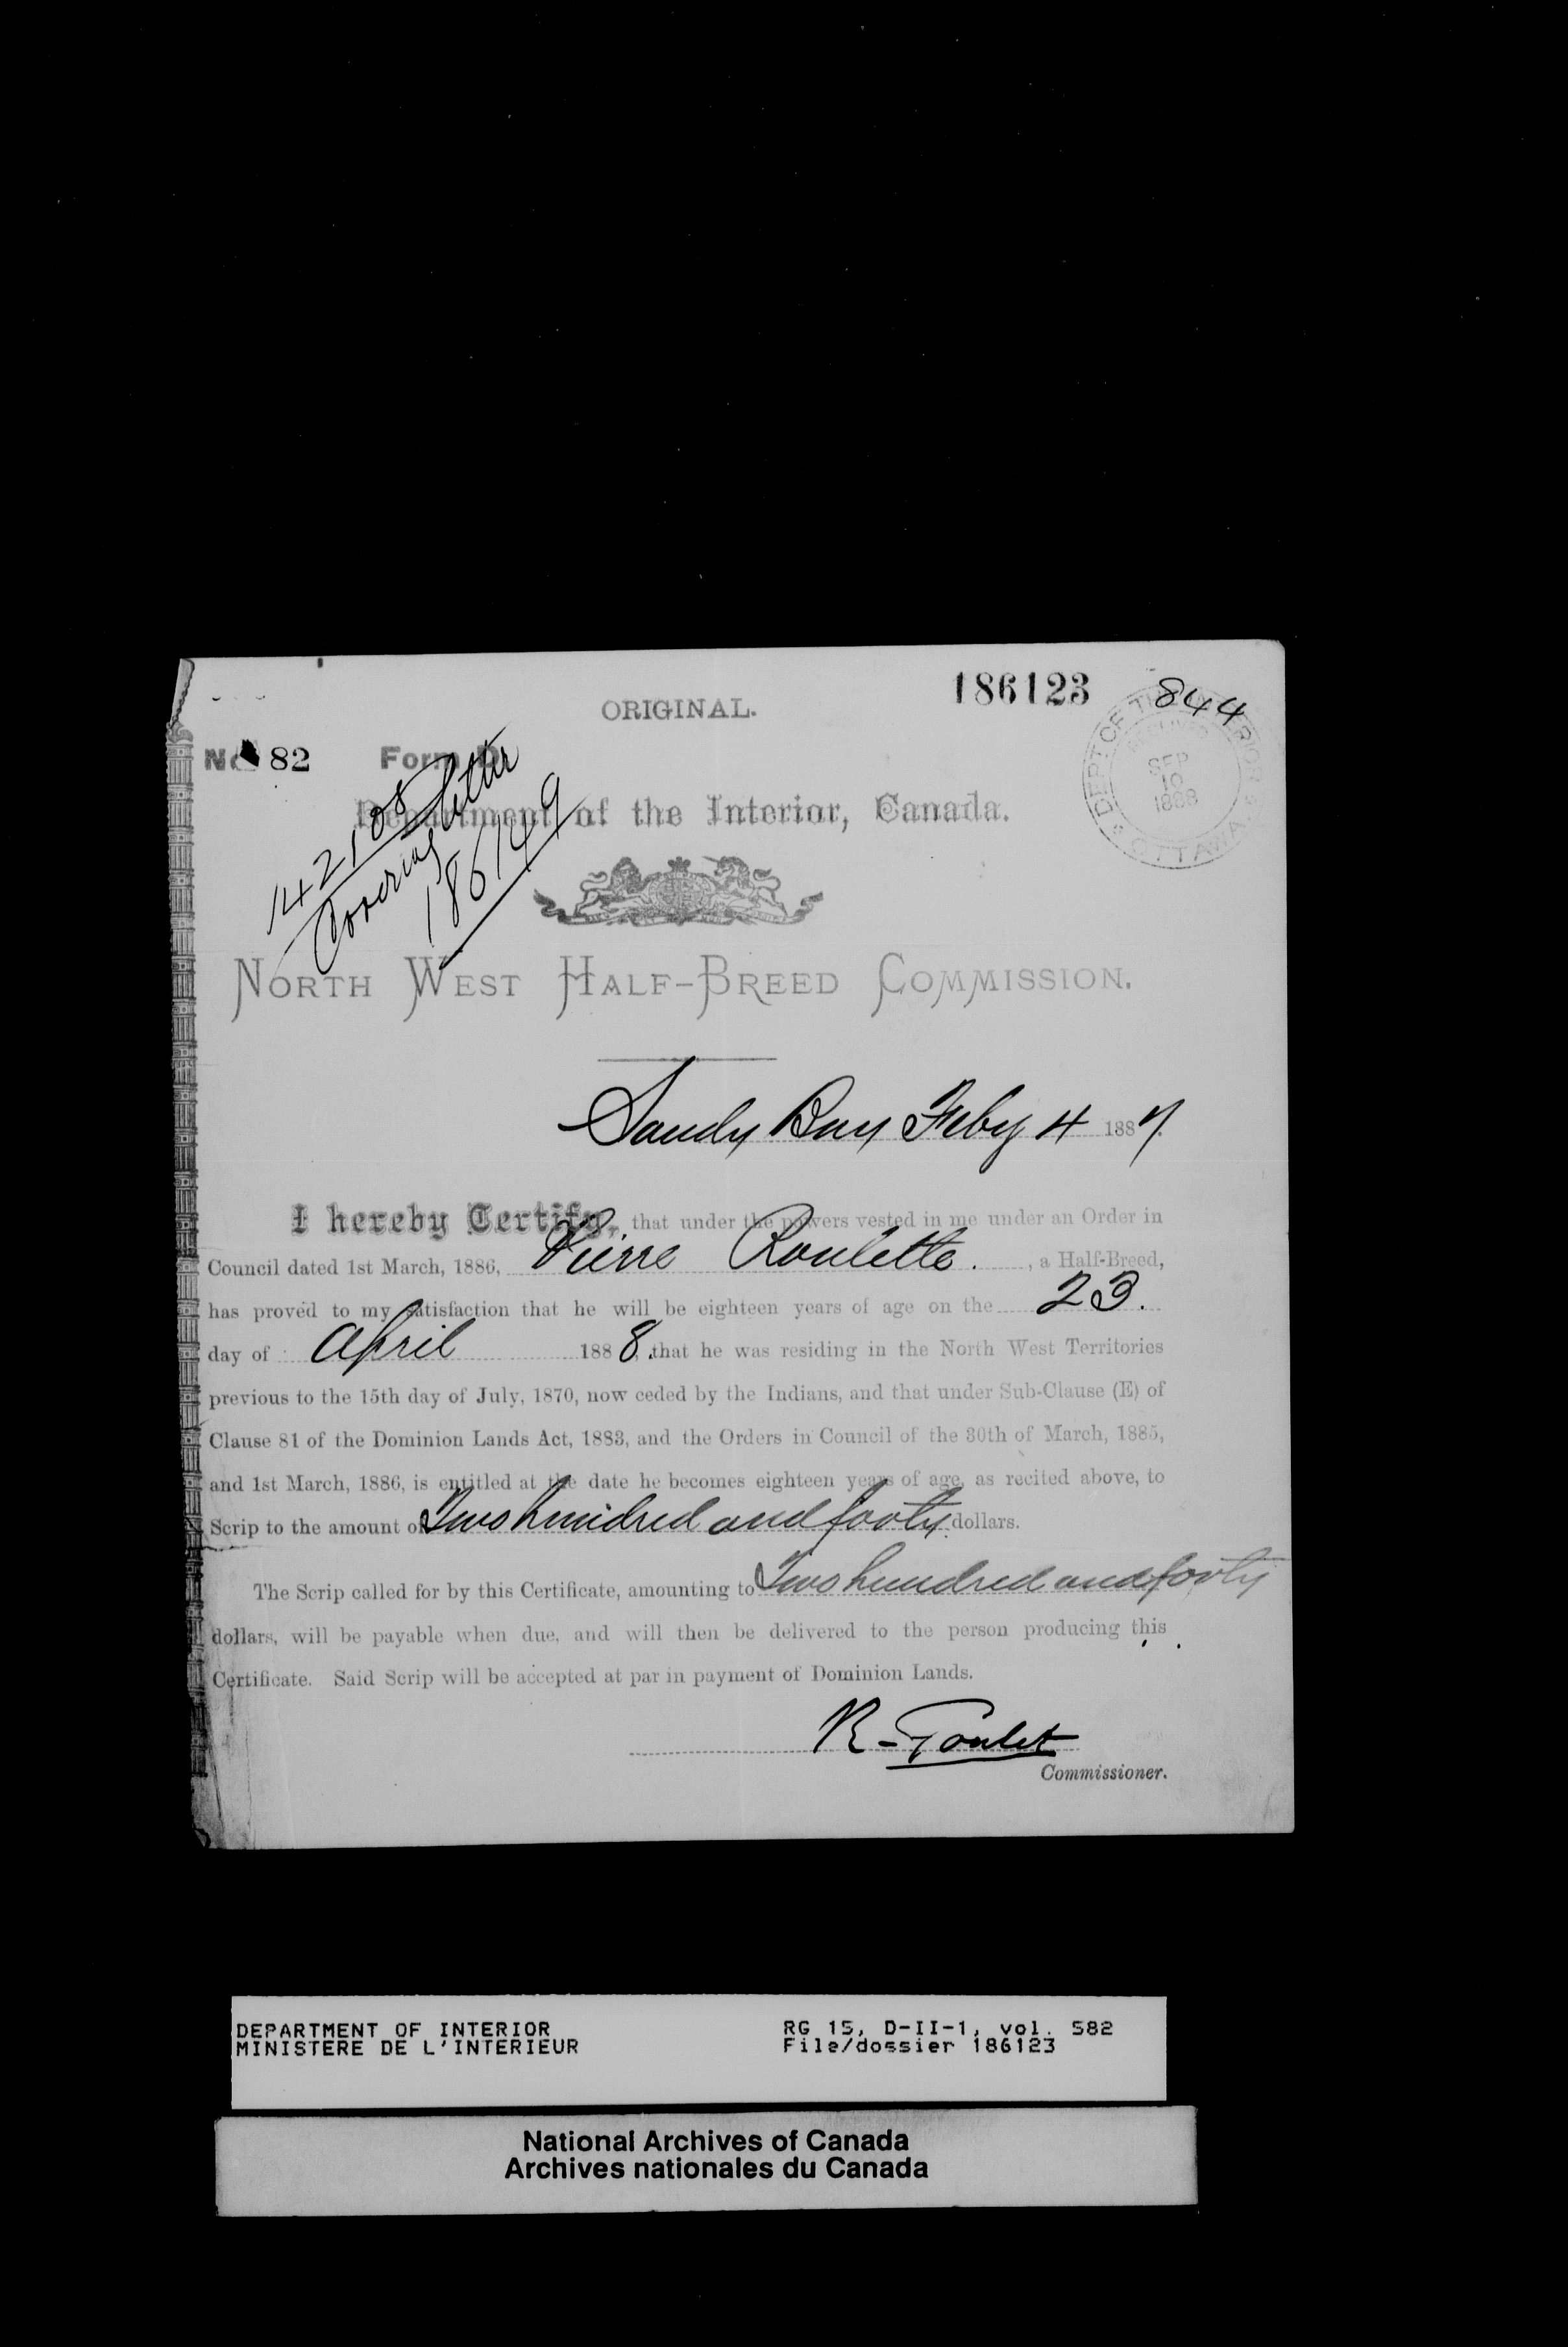 186123
844
ORIGINAL.
DEPT. OF THE INTERIOR
RECEIVED
SEP
18
1888
OTTAWA
No 82 Form D.
142108
Covering letter
186149
Department of the Interior, Canada.
NORTH WEST HALF-BREED COMMISSION.
Sandy Bay Feby 4 1887.
I hereby Certify, that under the powers vested in me under an Order in
Council dated 1st March, 1886, Pierre Roulette. , a Half-Breed,
has proved to my satisfaction that he will be eighteen years of age on the 23.
day of April 1888, that he was residing in the North West Territories
previous to the 15th day of July, 1870, now ceded by the Indians, and that under Sub-Clause (E) of
Clause 81 of the Dominion Lands Act, 1883, and the Orders in Council of the 30th of March, 1885,
and 1st March, 1886, is entitled at the date he becomes eighteen years of age, as recited above, to
Scrip to the amount of Two hundred and forty dollars.
The Scrip called for by this Certificate, amounting to Two hundred and forty
dollars, will be payable when due, and will then be delivered to the person producing this
Certificate. Said Scrip will be accepted at par in payment of Dominion Lands.
R. Goulet
Commissioner.
DEPARTMENT OF INTERIOR RG 15, D-II-1, vol. 582
MINISTERE DE L'INTERIEUR File/dossier 186123
National Archives of Canada
Archives nationales du Canada